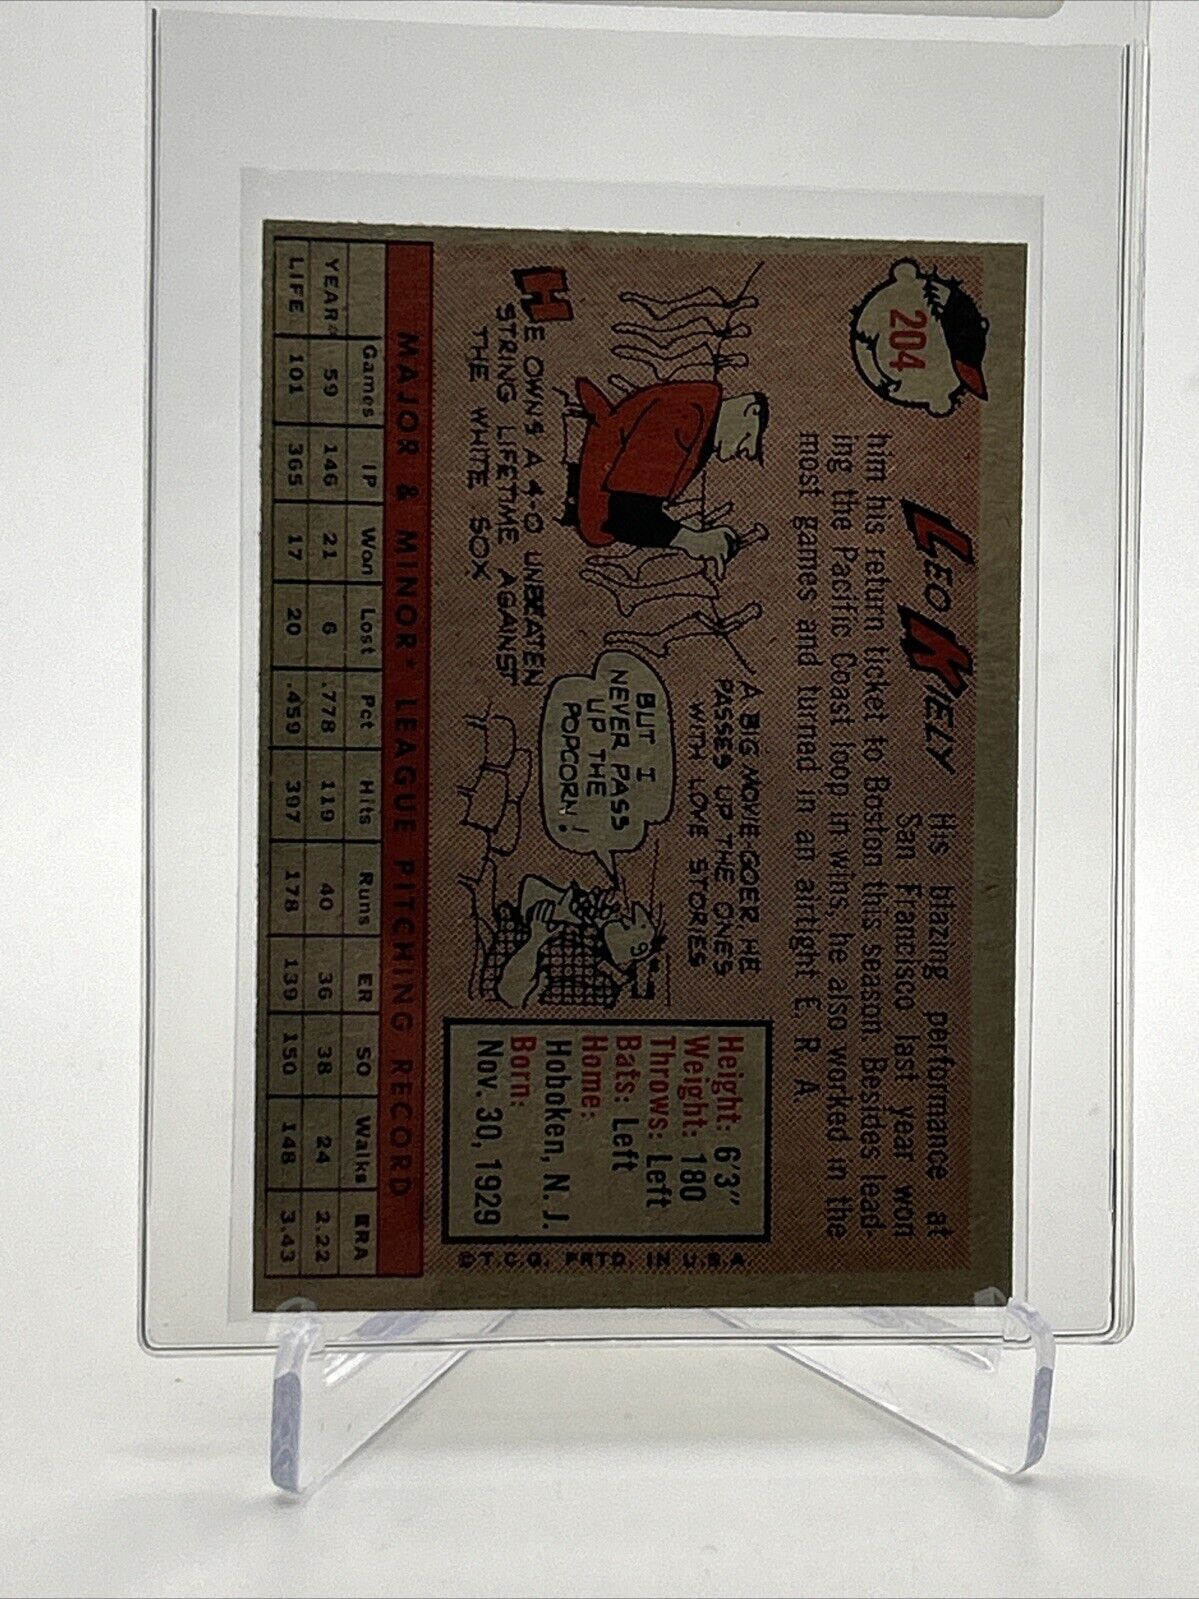 204
LEO KIELY
His blazing performance at
San Francisco last year won
him his return ticket to Boston this season. Besides lead-
ing the Pacific Coast loop in wins, he also worked in the
most games and turned in an airtight E. R. A.
HE OWNS A 4-0 UNBEATEN
STRING LIFETIME AGAINST
THE WHITE SOX
A BIG MOVIE-GOER HE
PASSES UP THE ONES
WITH LOVE STORIES
BUT I
NEVER PASS
UP THE
POPCORN!
Height: 6'3"
Weight: 180
Throws: Left
Bats: Left
Home:
Hoboken, N. J.
Born:
Nov. 30, 1929
© T.C.G. PRTD. IN U.S.A.
MAJOR & MINOR* LEAGUE PITCHING RECORD
Games IP Won Lost Pct Hits Runs ER SO Walks ERA
YEAR* 59 146 21 6 .778 119 40 36 38 24 2.22
LIFE 101 365 17 20 .459 397 178 139 150 148 3.43